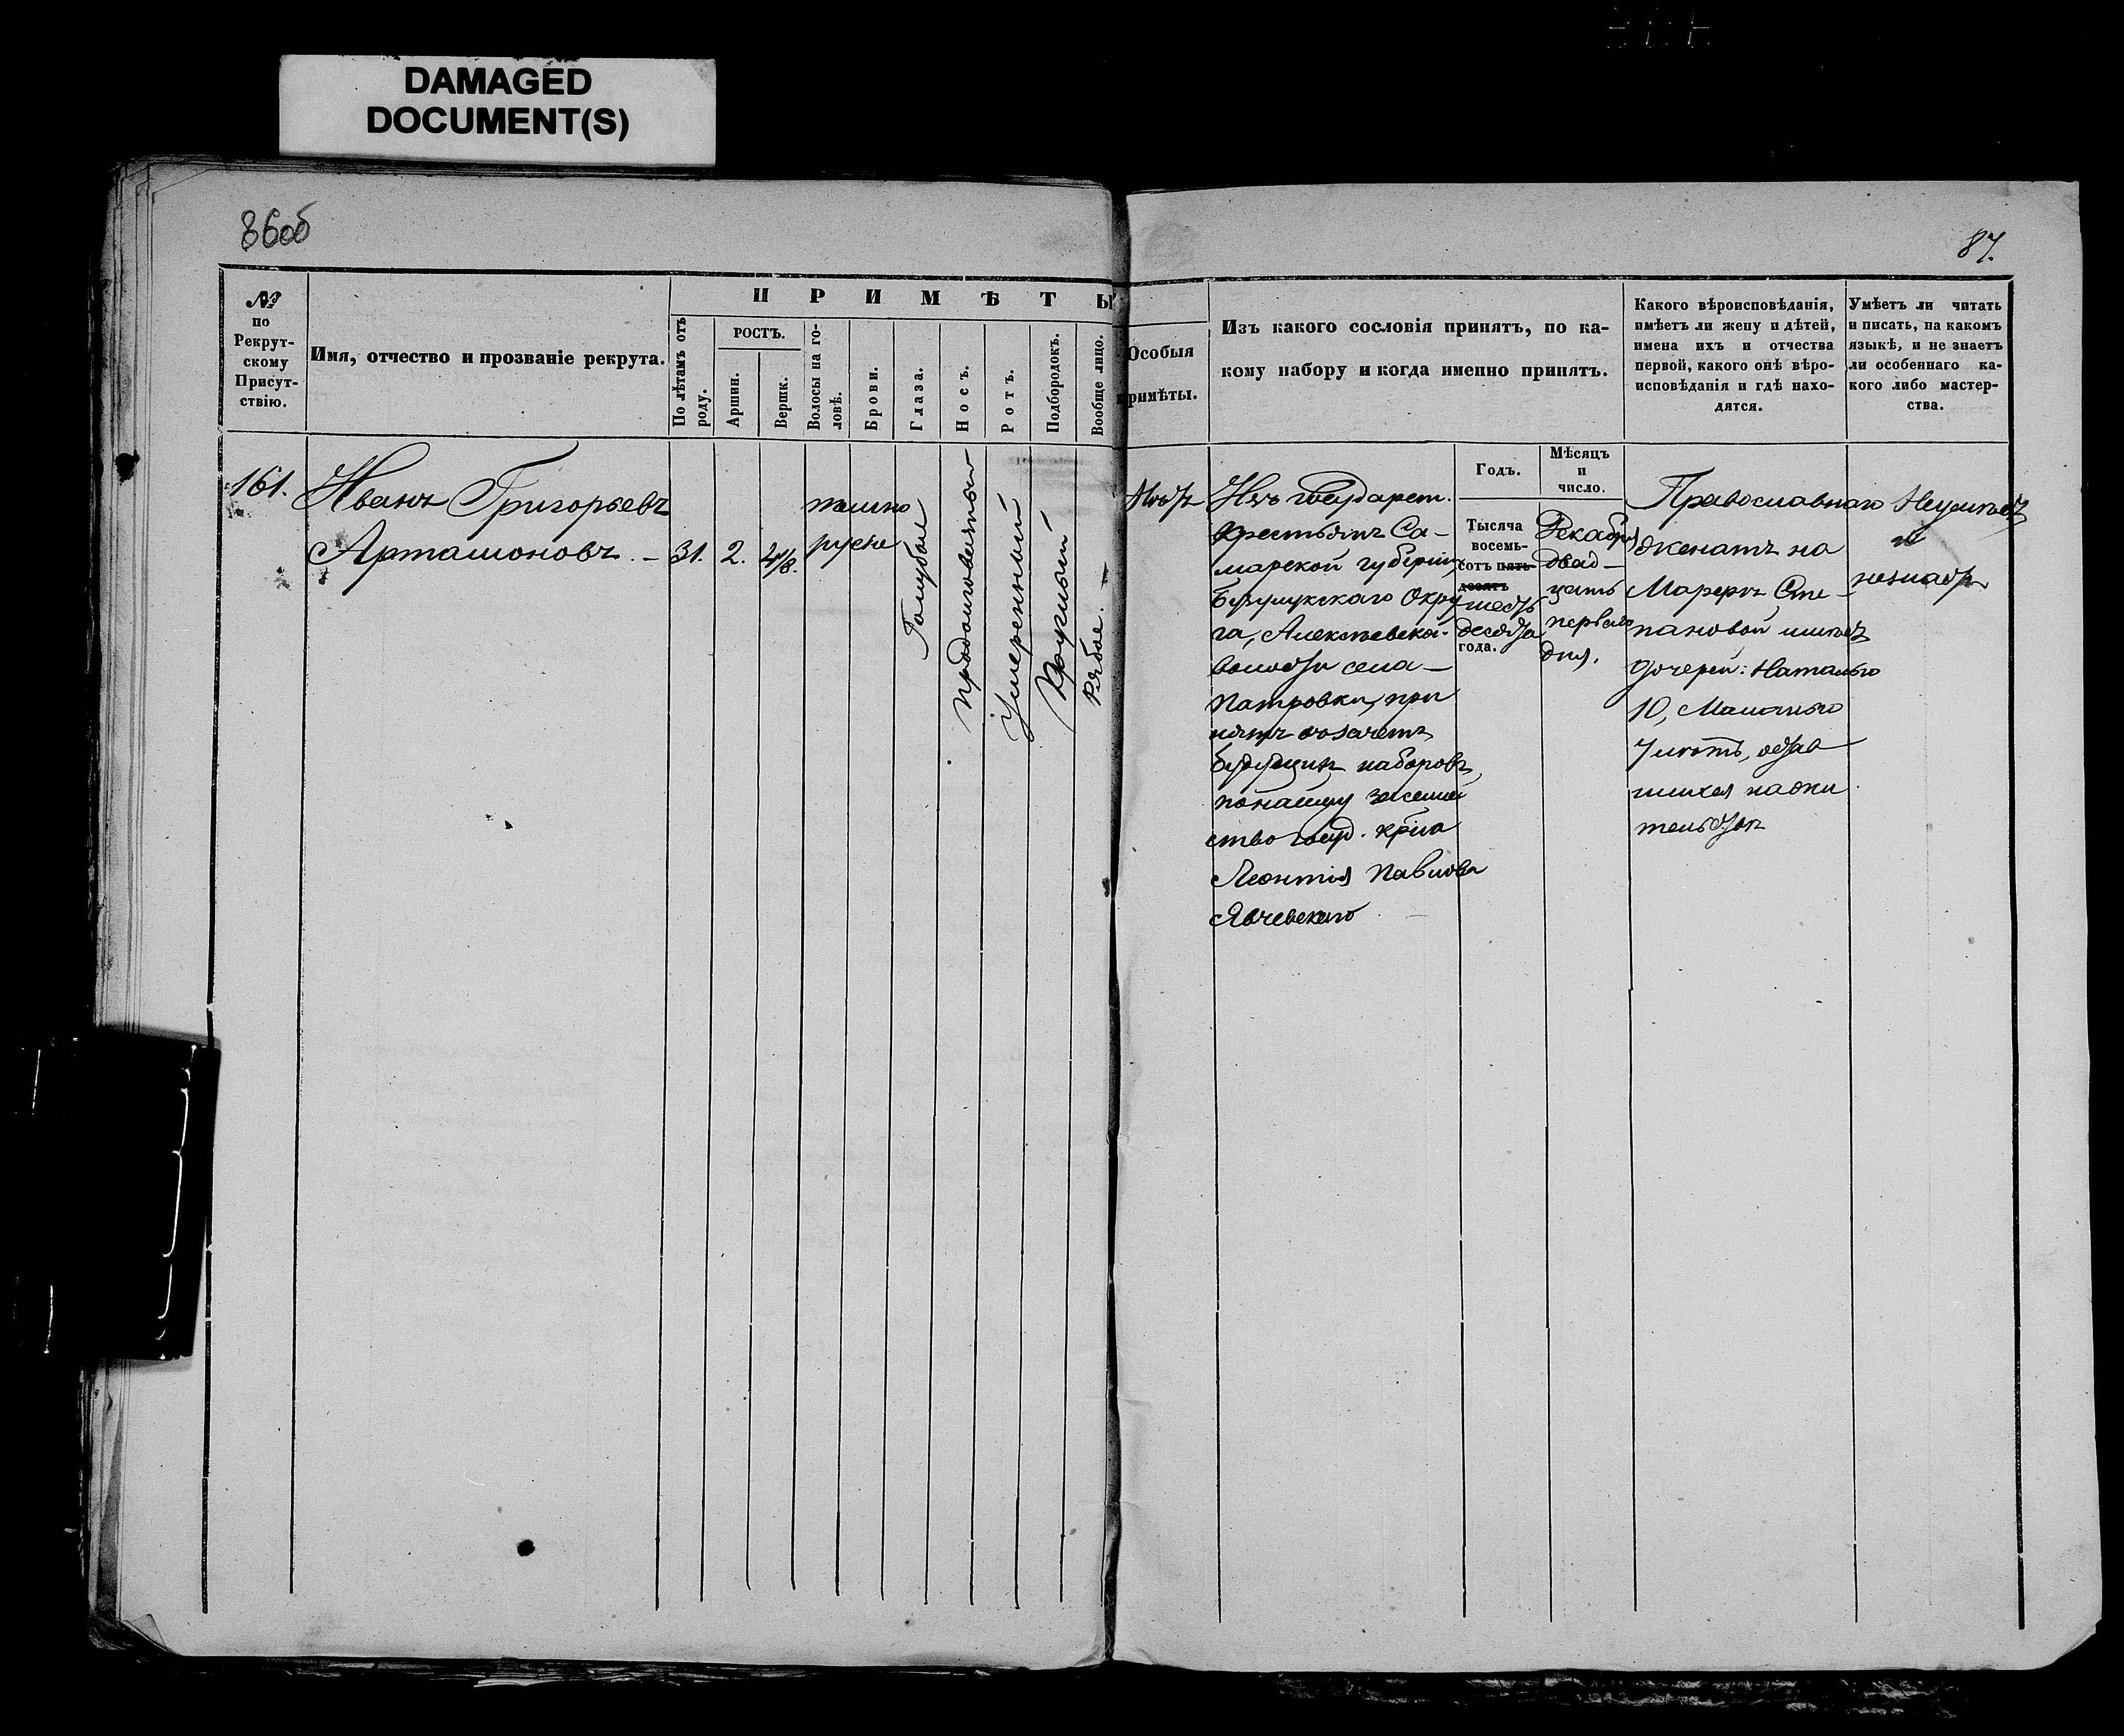 DAMAGED
DOCUMENT(S)
86об
87.
№
по
Рекрут-
скому
Присут-
ствію.
Имя, отчество и прозваніе рекрута.
ПРИМѢТЫ
По лѣтамъ отъ
роду.
РОСТЪ.
Аршин.
Вершк.
Волосы на го-
ловѣ.
Брови.
Глаза.
Носъ.
Ротъ.
Подбородокъ.
Вообще лицо.
Особыя
примѣты.
Изъ какого сословія принятъ, по ка-
кому набору и когда именно принятъ.
Годъ.
Мѣсяцъ
и
число.
Какого вѣроисповѣданія,
имѣетъ ли жену и дѣтей,
имена ихъ и отчества
первой, какого онѣ вѣро-
исповѣданія и гдѣ нахо-
дятся.
Умѣетъ ли читать
и писать, на какомъ
языкѣ, и не знаетъ
ли особеннаго ка-
кого либо мастер-
ства.
161.
Иванъ Григорьевъ
Арташоновъ. –
31.
2.
4/8.
темно
русые
Голубые
Продолговатый
Умеренный
Круглый
Рябое. –
Нѣтъ
Изъ Государст.
крестьянъ Са-
марской губерніи,
Бузулукскаго Окру
га, Алексѣевской
волости села –
Патровки, при
нятъ въ зачетъ
будущихъ наборовъ,
по найму за семей
ство госуд. кр–на
Леонтія Павлова
Явчевскаго
Тысяча
восемь-
сотъ пять-
десятъ
шесть
десятъ
года.
Декабря
двад–
цать
перваго
дня.
Православнаго
женатъ на
Марѳѣ Сте–
пановой имѣетъ
дочерей: Наталью
10, Маланью
7 лѣтъ, остав
шихся на жи
тельствѣ
Неумѣетъ
и
незнаетъ